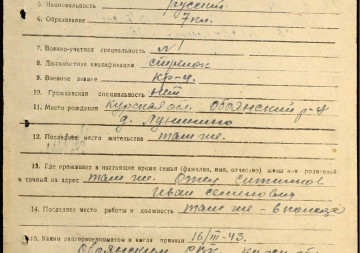 5. Национальность русский
6. Образование 7 кл.
7. Военно-учетная специальность №1
8. Должностная квалификация стрелок
9. Военное звание кр-ц.
10. Гражданская специальность нет
11. Место рождения Курская ом. Обоянский р-н
д. Лунино
12. Последнее место жительства там же.
13. Где проживает в настоящее время семья (фамилия, имя, отчество) жены или родителей
и точный их адрес там же. Отец
Иван Семенович
14. Последнее место работы и должность там же - в колхозе
15. Каким райгорвоенкоматом и когда призван 16/III-43.
Обоянским РВК